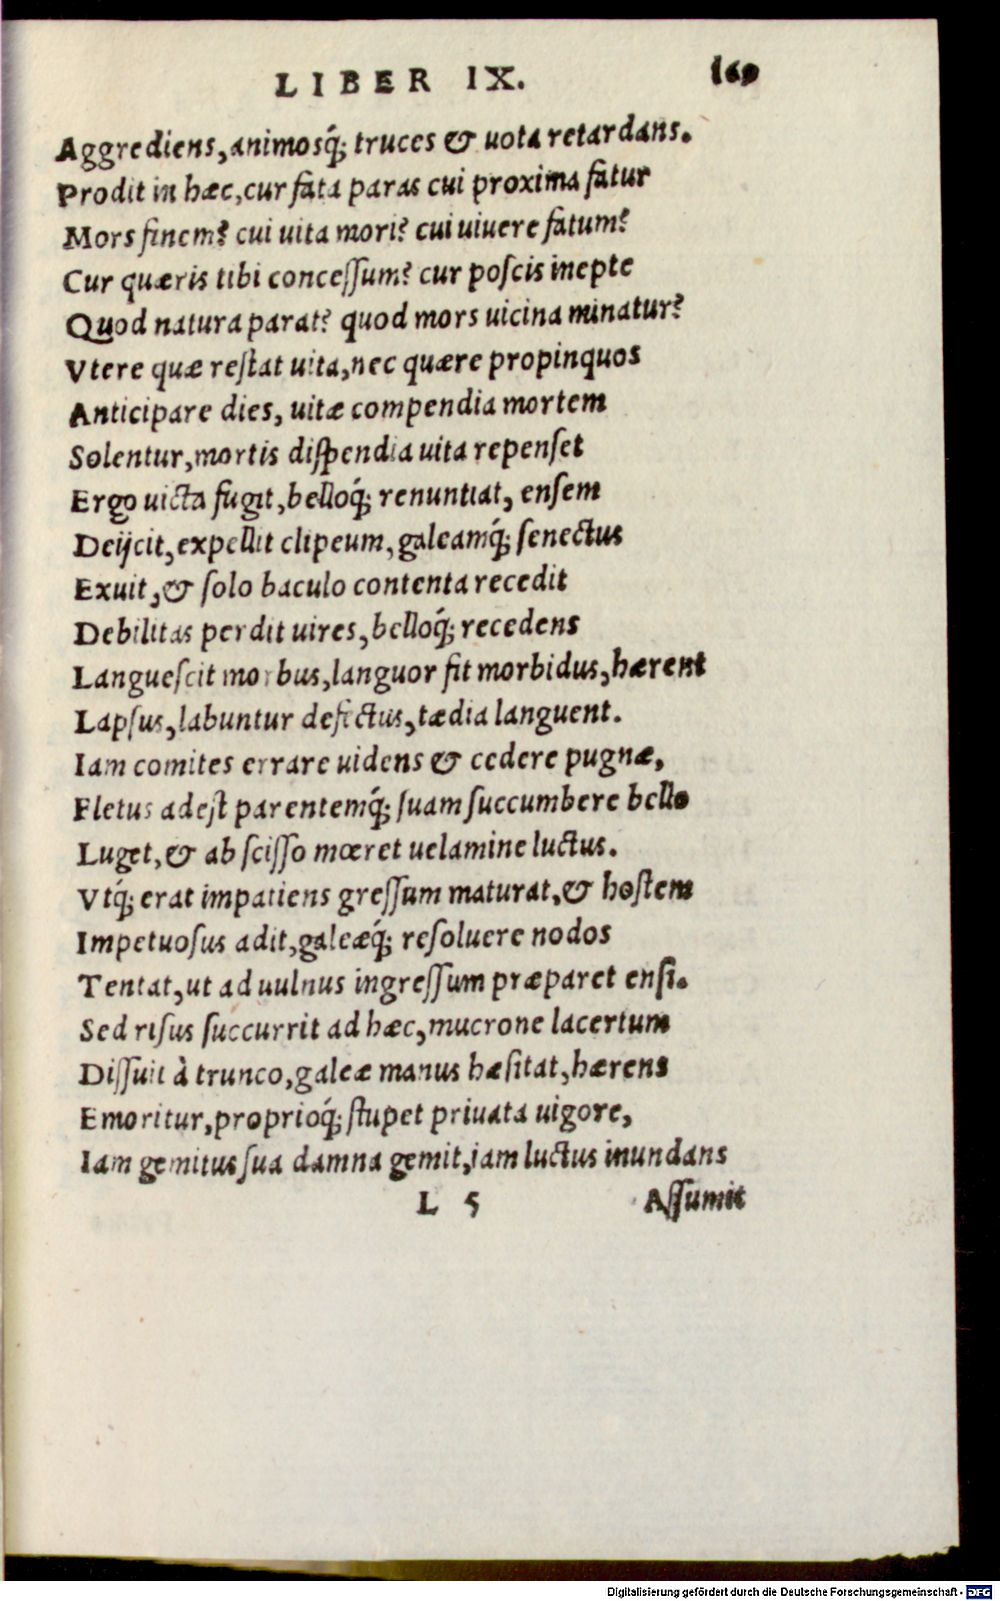 LIBER IX. 169
Aggrediens, animosq́; truces & uota retardans.
Prodit in hæc, cur fata paras cui proxima fatur
Mors finem? cui uita mori? cui uiuere fatum?
Cur quæris tibi conceſſum? cur poſcis inepte
Quod natura parat? quod mors uicina minatur?
Vtere quæ reſtat uita, nec quære propinquos
Anticipare dies, uitæ compendia mortem
Solentur, mortis diſpendia uita repenſet
Ergo uicta fugit, belloq́; renuntiat, enſem
Deijcit, expellit clipeum, galeamq́; ſenectus
Exuit, & ſolo baculo contenta recedit
Debilitas perdit uires, belloq́; recedens
Langueſcit morbus, languor fit morbidus, hærent
Lapſus, labuntur defectus, tædia languent.
Iam comites errare uidens & cedere pugnæ,
Fletus adeſt parentemq́; ſuam ſuccumbere bello
Luget, & ab ſciſſo mœret uelamine luctus.
Vtq́; erat impatiens greſſum maturat, & hoſtem
Impetuoſus adit, galeæq́; reſoluere nodos
Tentat, ut ad uulnus ingreſſum præparet enſi.
Sed riſus ſuccurrit ad hæc, mucrone lacertum
Diſſuit à trunco, galeæ manus hæſitat, hærens
Emoritur, proprioq́; ſtupet priuata uigore,
Iam gemitus ſua damna gemit, iam luctus inundans
L 5 Aſſumit
Digitalisierung gefördert durch die Deutsche Forschungsgemeinschaft - DFG